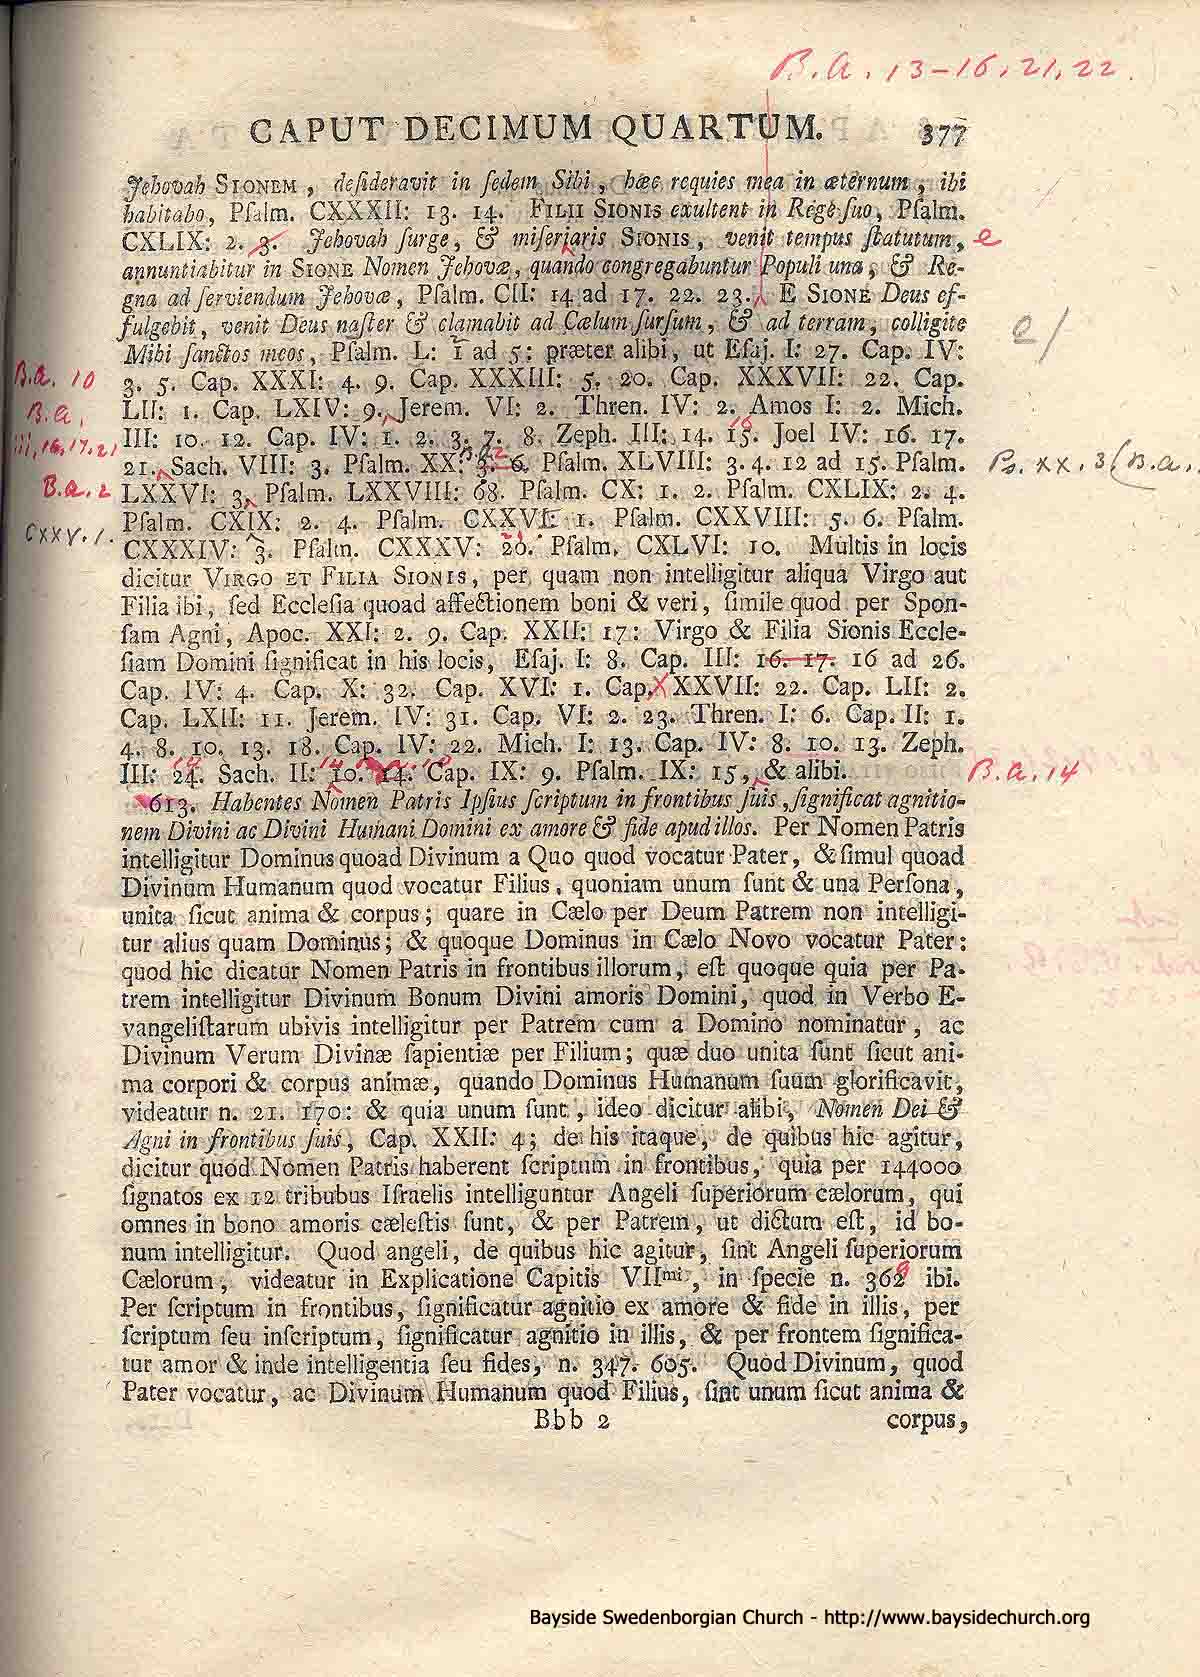 B.A. 13-16, 21, 22.
CAPUT DECIMUM QUARTUM. 377
Jehovah SIONEM, deſideravit in ſedem Sibi, hæc requies mea in æternum, ibi
habitabo, Pſalm. CXXXII: 13. 14. FILII SIONIS exultent in Rege ſuo, Pſalm.
CXLIX: 2. 3. Jehovah ſurge, & miſeriaris SIONIS, venit tempus ſtatutum, e
annuntiabitur in SIONE Nomen Jehovæ, quando congregabuntur Populi una, & Re-
gna ad ſerviendum Jehovæ, Pſalm. CII: 14 ad 17. 22. 23. E SIONE Deus ef-
fulgebit, venit Deus naſter & clamabit ad Cælum ſurſum, & ad terram, colligite e/
Mihi ſanctos meos, Pſalm. L: 1 ad 5: præter alibi, ut Eſaj. I: 27. Cap. IV:
B.A. 10 3. 5. Cap. XXXI: 4. 9. Cap. XXXIII: 5. 20. Cap. XXXVII: 22. Cap.
B.A. LII: 1. Cap. LXIV: 9. Jerem. VI: 2. Thren. IV: 2. Amos I: 2. Mich.
iii, 16, 17, 21 III: 10. 12. Cap. IV: 1. 2. 3. 7. 8. Zeph. III: 14. 15. Joel IV: 16. 17.
21. Sach. VIII: 3. Pſalm. XX: 3. 6. Pſalm. XLVIII: 3. 4. 12 ad 15. Pſalm. Ps. xx. 3 (B.A.
B.A. 2 LXXVI: 3. Pſalm. LXXVIII: 68. Pſalm. CX: 1. 2. Pſalm. CXLIX: 2. 4.
CXXV. 1. Pſalm. CXIX: 2. 4. Pſalm. CXXVI: 1. Pſalm. CXXVIII: 5. 6. Pſalm.
CXXXIV: 3. Pſalm. CXXXV: 20. Pſalm. CXLVI: 10. Multis in locis
dicitur VIRGO ET FILIA SIONIS, per quam non intelligitur aliqua Virgo aut
Filia ibi, ſed Eccleſia quoad affectionem boni & veri, ſimile quod per Spon-
ſam Agni, Apoc. XXI: 2. 9. Cap. XXII: 17: Virgo & Filia Sionis Eccle-
ſiam Domini ſignificat in his locis, Eſaj. I: 8. Cap. III: 16. 17. 16 ad 26.
Cap. IV: 4. Cap. X: 32. Cap. XVI: 1. Cap. XXXVII: 22. Cap. LII: 2.
Cap. LXII: 11. Jerem. IV: 31. Cap. VI: 2. 23. Thren. I: 6. Cap. II: 1.
4. 8. 10. 13. 18. Cap. IV: 22. Mich. I: 13. Cap. IV: 8. 10. 13. Zeph.
III: 24. Sach. II: 10. 14. Cap. IX: 9. Pſalm. IX: 15, & alibi. B.A. 14
613. Habentes Nomen Patris Ipſius ſcriptum in frontibus ſuis, ſignificat agnitio-
nem Divini ac Divini Humani Domini ex amore & fide apud illos. Per Nomen Patris
intelligitur Dominus quoad Divinum a Quo quod vocatur Pater, & ſimul quoad
Divinum Humanum quod vocatur Filius, quoniam unum ſunt & una Perſona,
unita ſicut anima & corpus; quare in Cælo per Deum Patrem non intelligi-
tur alius quam Dominus; & quoque Dominus in Cælo Novo vocatur Pater:
quod hic dicatur Nomen Patris in frontibus illorum, eſt quoque quia per Pa-
trem intelligitur Divinum Bonum Divini amoris Domini, quod in Verbo E-
vangeliſtarum ubivis intelligitur per Patrem cum a Domino nominatur, ac
Divinum Verum Divinæ ſapientiæ per Filium; quæ duo unita ſunt ſicut ani-
ma corpori & corpus animæ, quando Dominus Humanum ſuum glorificavit,
videatur n. 21. 170: & quia unum ſunt, ideo dicitur alibi, Nomen Dei &
Agni in frontibus ſuis, Cap. XXII: 4; de his itaque, de quibus hic agitur,
dicitur quod Nomen Patris haberent ſcriptum in frontibus, quia per 144000
ſignatos ex 12 tribubus Iſraelis intelliguntur Angeli ſuperiorum cælorum, qui
omnes in bono amoris cæleſtis ſunt, & per Patrem, ut dictum eſt, id bo-
num intelligitur. Quod angeli, de quibus hic agitur, ſint Angeli ſuperiorum
Cælorum, videatur in Explicatione Capitis VIImi, in ſpecie n. 362 ibi.
Per ſcriptum in frontibus, ſignificatur agnitio ex amore & fide in illis, per
ſcriptum ſeu inſcriptum, ſignificatur agnitio in illis, & per frontem ſignifica-
tur amor & inde intelligentia ſeu fides, n. 347. 605. Quod Divinum, quod
Pater vocatur, ac Divinum Humanum quod Filius, ſint unum ſicut anima &
Bbb 2 corpus,
Bayside Swedenborgian Church - http://www.baysidechurch.org